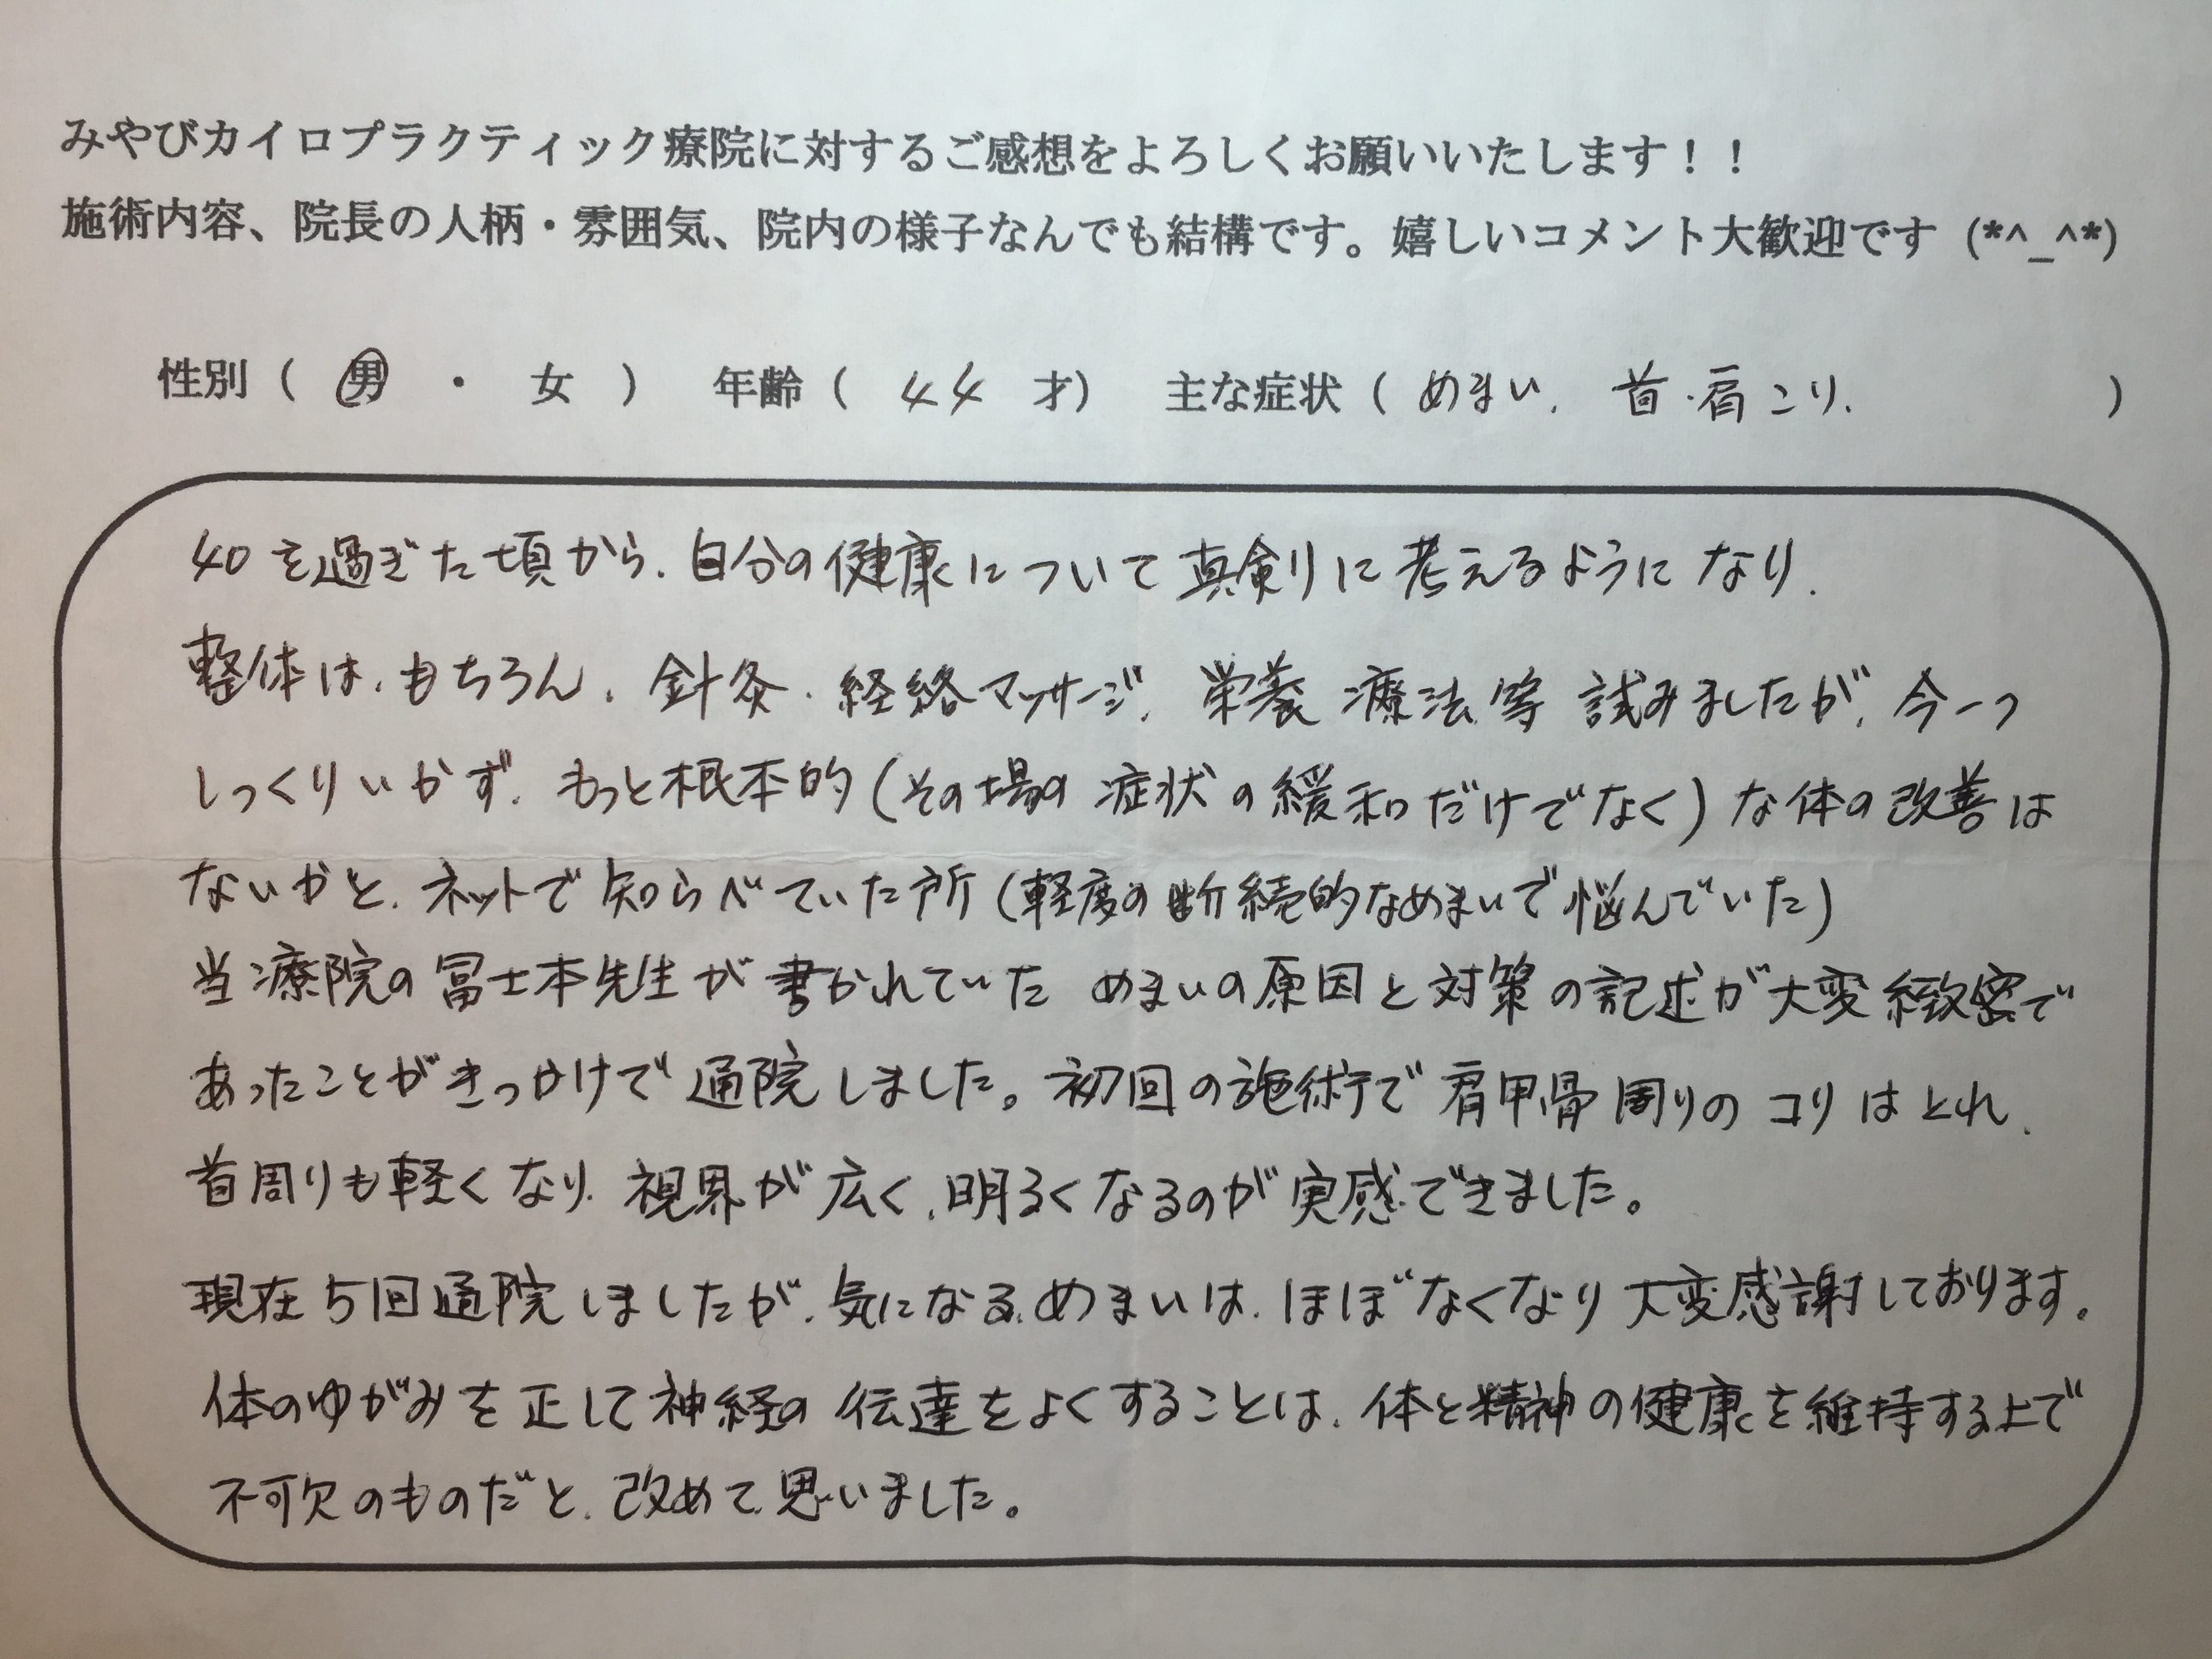 みやびカイロプラクティック療院に対するご感想をよろしくお願いいたします！！
施術内容、院長の人柄・雰囲気、院内の様子なんでも結構です。嬉しいコメント大歓迎です (*^_^*)
性別（ 男 ・ 女 ） 年齢（ 44 才） 主な症状（ めまい、首・肩こり、 ）
40を過ぎた頃から、自分の健康について真剣に考えるようになり、
整体は、もちろん、針灸・経絡マッサージ、栄養療法等試みましたが、今一つ
しっくりいかず、もっと根本的(その場の症状の緩和だけでなく)な体の改善は
ないかと、ネットで知らべていた所(軽度の断続的なめまいで悩んでいた)
当療院の冨士本先生が書かれていためまいの原因と対策の記述が大変緻密で
あったことがきっかけで通院しました。初回の施術で肩甲骨周りのコリはとれ、
首周りも軽くなり、視界が広く、明るくなるのが実感できました。
現在5回通院しましたが、気になるめまいは、ほぼなくなり大変感謝しております。
体のゆがみを正して神経の伝達をよくすることは、体と精神の健康を維持する上で
不可欠のものだと、改めて思いました。